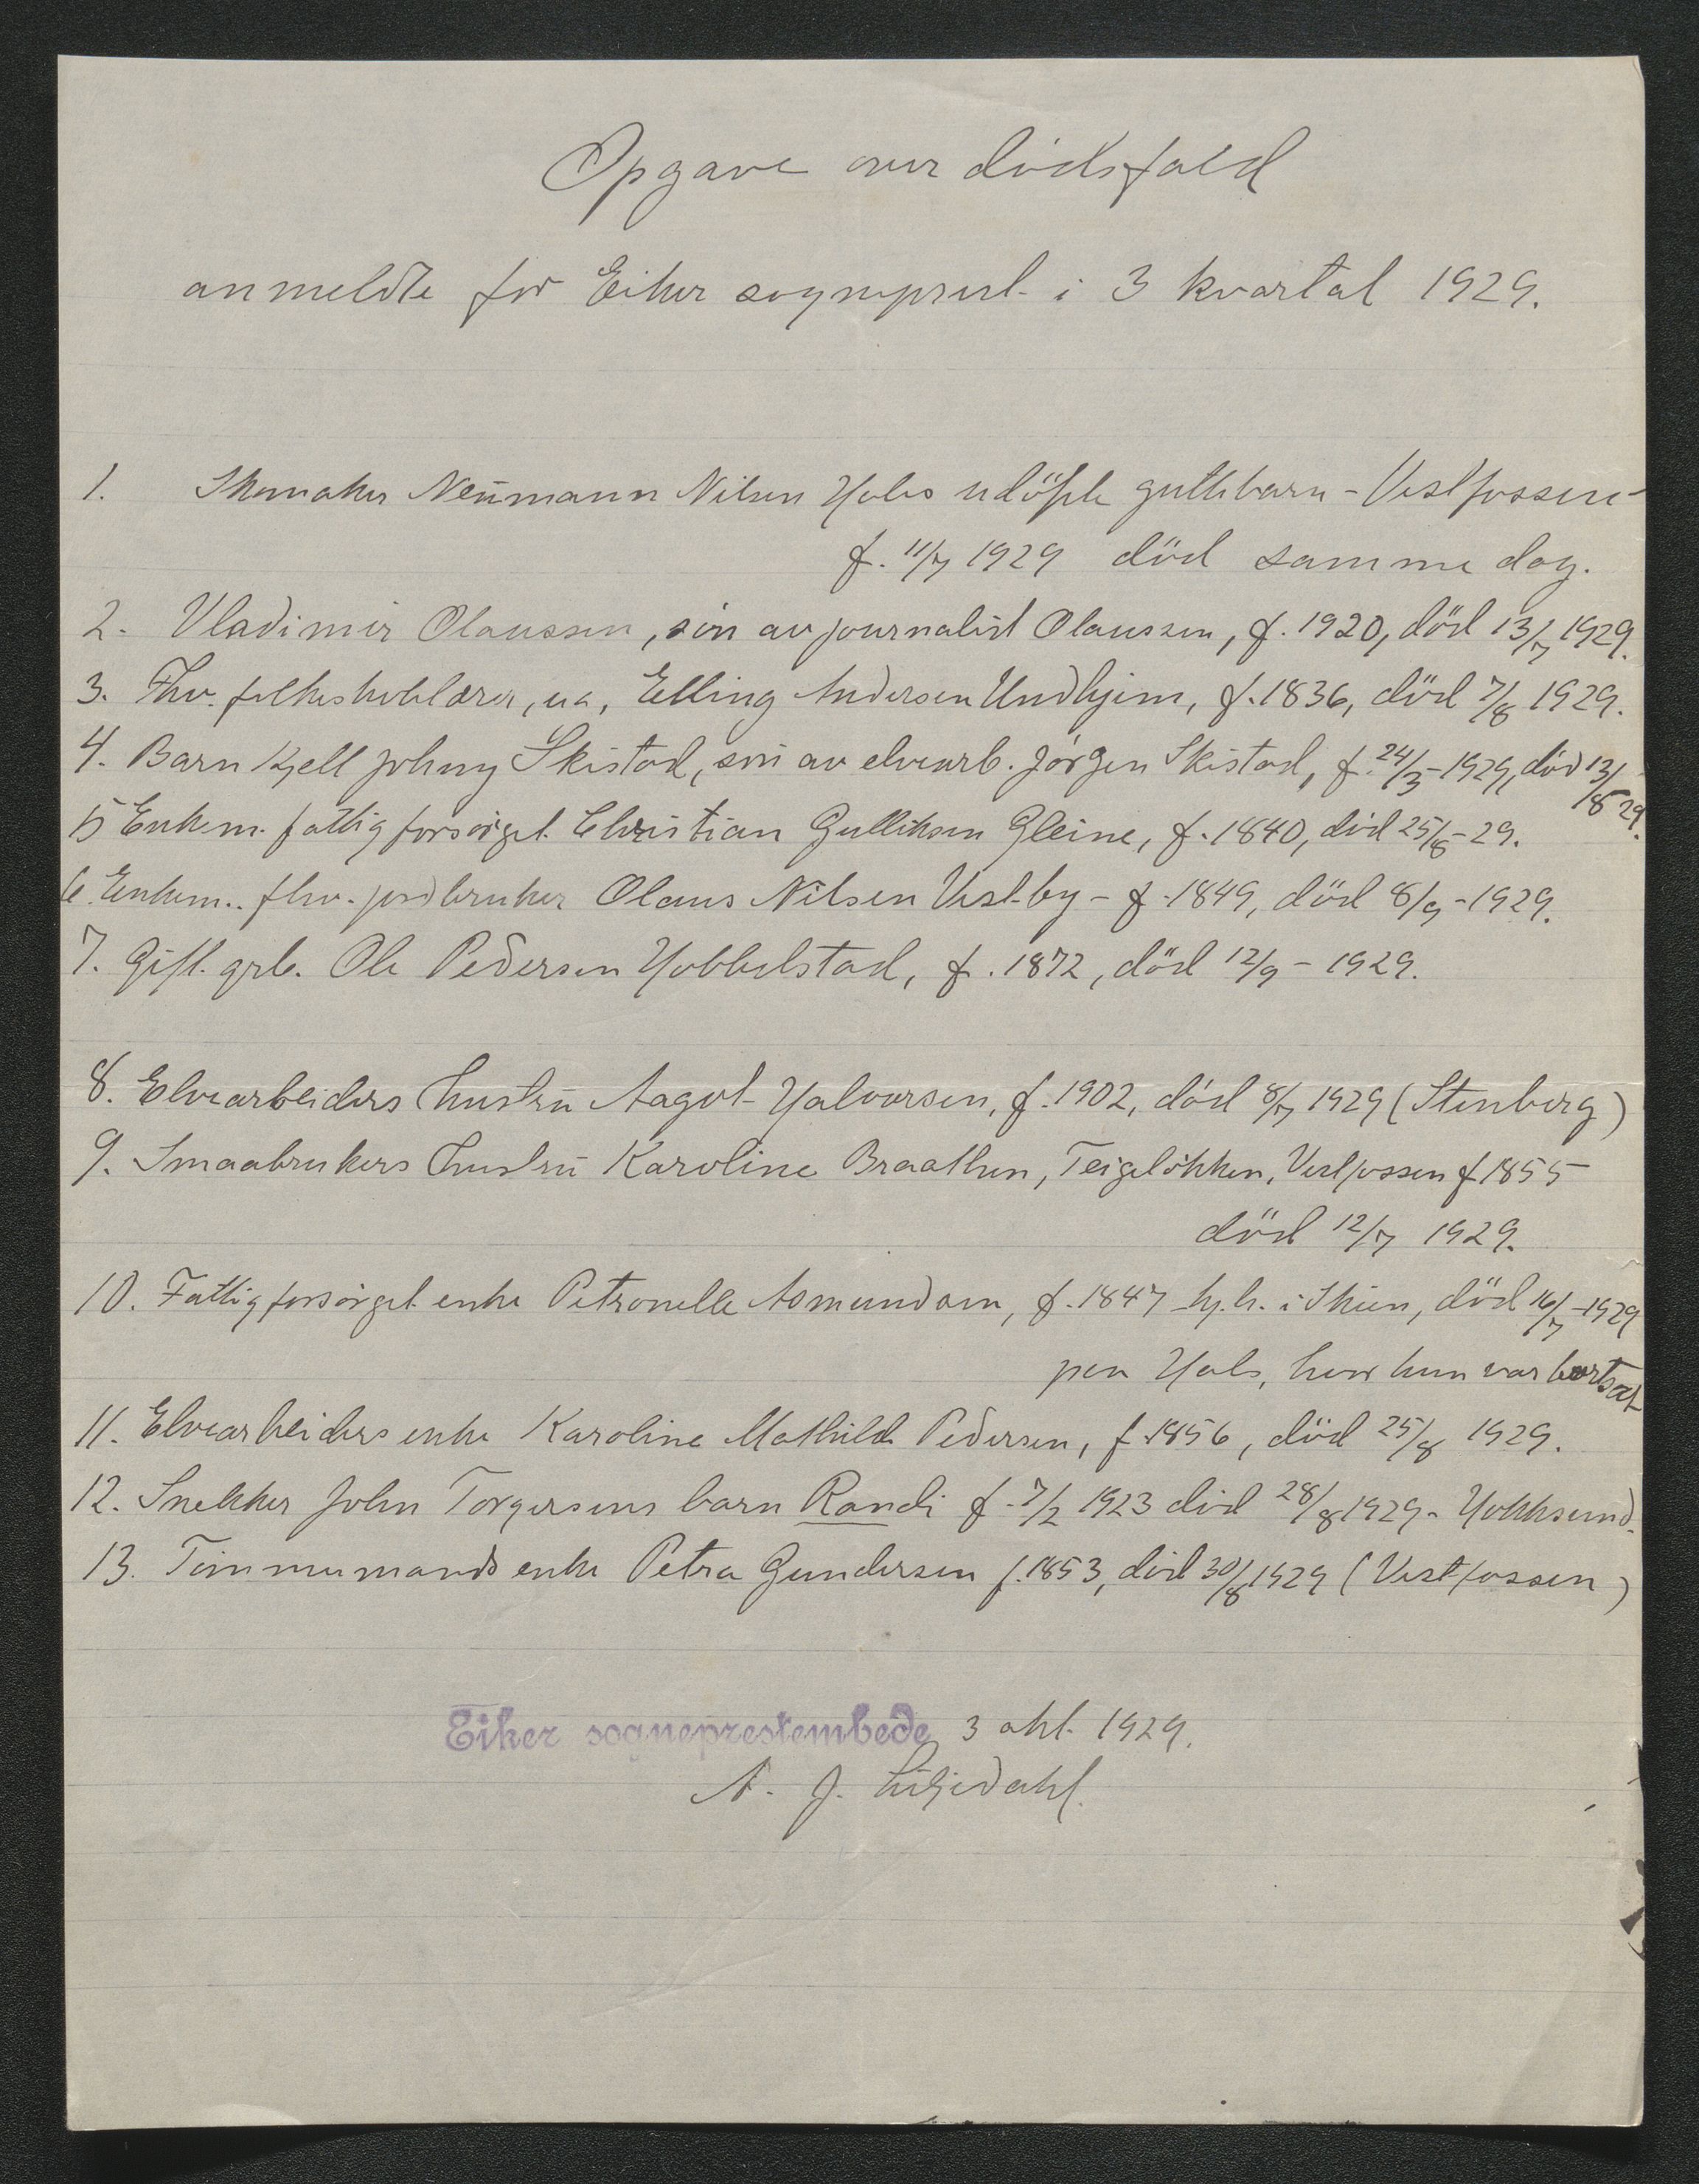 Opgave over dödsfald
anmeldte for Eiker sogneprest i 3 kvartal 1929.
1. Skomaker Neumann Nilsen Hals udöpte guttebarn - Vestfossen -
f. 11/7 1929 död samme dag.
2. Vladimir Olaussen, sön av journalist Olaussen, f. 1920, död 13/7 1929.
3. Fhv. folkeskolelærer, ua, Elling Andersen Undhjem, f. 1836, död 7/8 1929.
4. Barn Kjell Johnny Skistad, sön av elvearb. Jörgen Skistad, f. 24/3 - 1929, död 13/8 29.
5 Enkem. fattigforsörget Christian Gulliksen Gleine, f. 1840, död 25/8 - 29.
6. Enkem.. fhv. jordbruker Olaus Nilsen Vestby - f. 1849, död 8/9 - 1929.
7. Gift. grb. Ole Pedersen Hobbelstad, f. 1872, död 12/9 - 1929.
8. Elvearbeiders hustru Aagot Halvorsen, f. 1902, död 8/7 1929 (Stenberg)
9. Smaabrukers hustru Karoline Braathen, Teigelökken, Vestfossen f 1855
död 12/7 1929.
10. Fattigforsörget enke Petronelle Asmundsen, f. 1847 hj.h. i Skien, död 16/7 - 1929
paa Hals, hvor hun var bortsat
11. Elvearbeiders enke Karoline Mathilde Pedersen, f. 1856, död 25/8 1929.
12. Snekker John Torgersens barn Randi f. 7/2 1923 död 28/8 1929 - Hokksund.
13. Tömmermands enke Petra Gundersen f. 1853, död 30/8 1929 (Vestfossen)
Eiker sogneprestembede 3 okt. 1929.
N. J. Liljedahl.